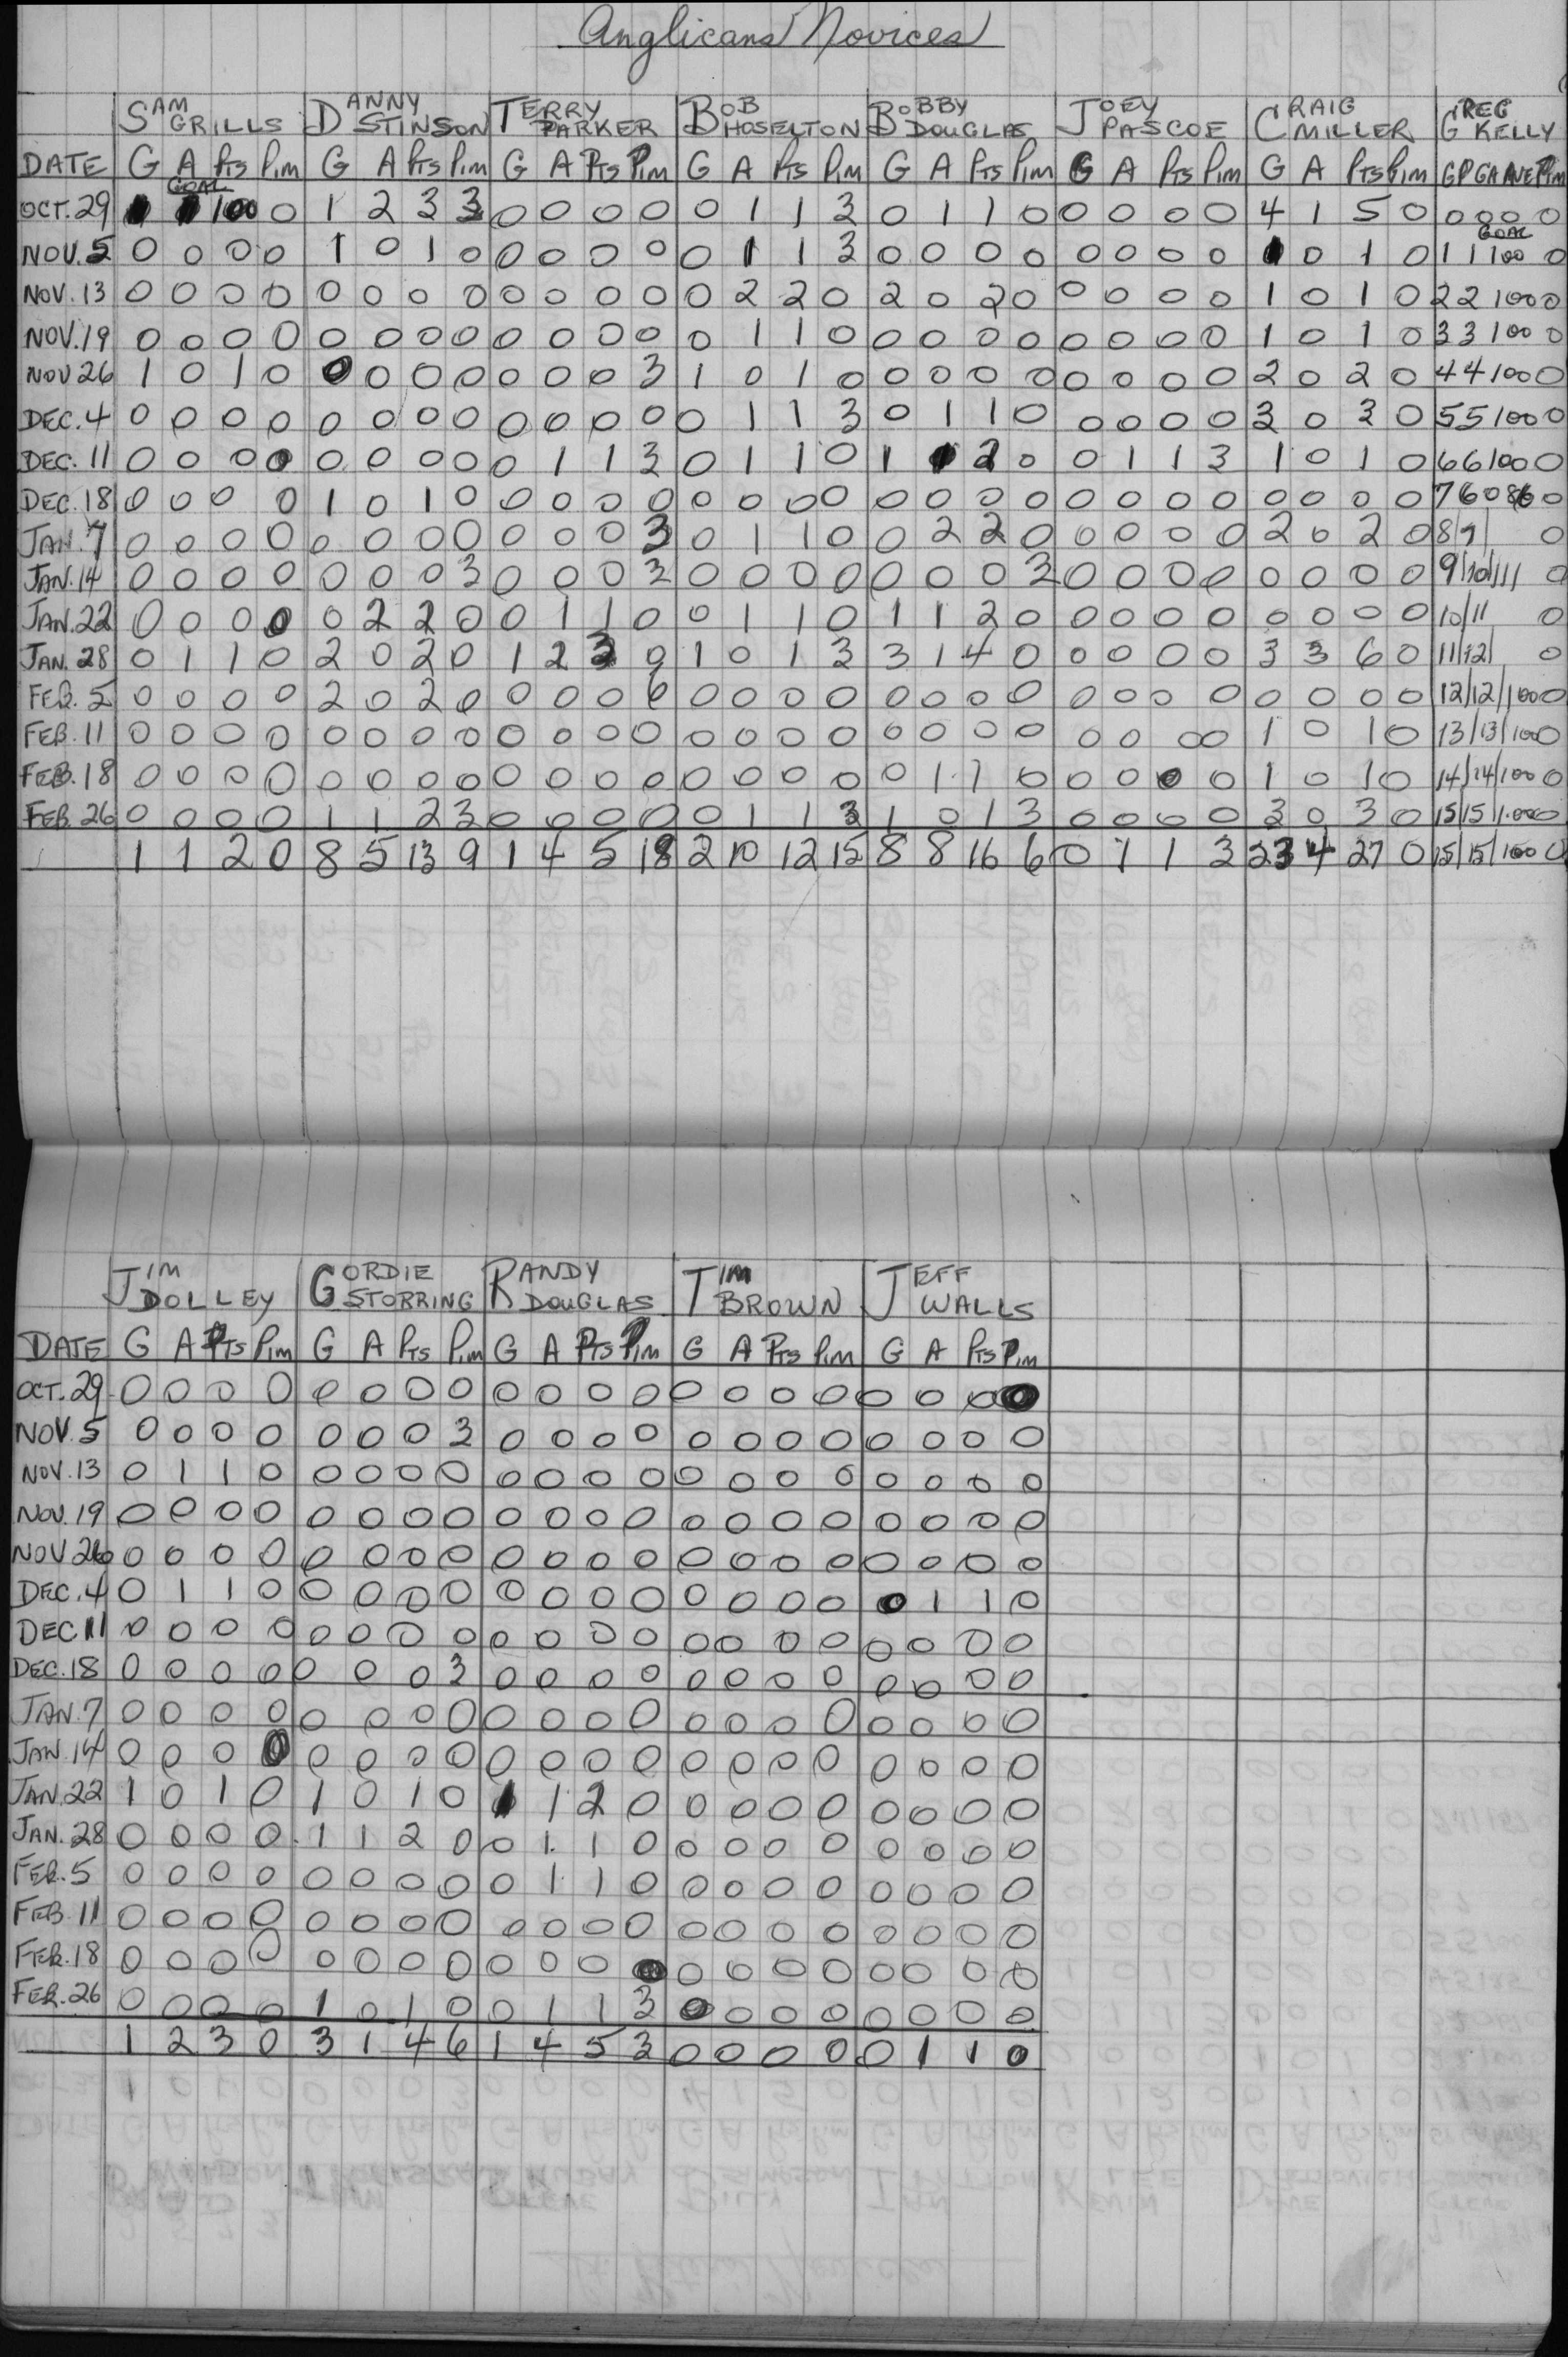 Anglicans Novices
SAM GRILLS DANNY STINSON TERRY PARKER BOB HOSELTON BOBBY DOUGLAS JOEY PASCOE CRAIG MILLER GREG KELLY
DATE G A Pts Pim G A Pts Pim G A Pts Pim G A Pts Pim G A Pts Pim G A Pts Pim G A Pts Pim GP GA AVE Pim
OCT. 29 1 1 GOAL 100 0 1 2 3 3 0 0 0 0 0 1 1 3 0 1 1 0 0 0 0 0 4 1 5 0 0 0 0 0
NOV. 5 0 0 0 0 1 0 1 0 0 0 0 0 0 1 1 3 0 0 0 0 0 0 0 0 1 0 1 0 1 1 GOAL 100 0
NOV. 13 0 0 0 0 0 0 0 0 0 0 0 0 0 2 2 0 2 0 2 0 0 0 0 0 1 0 1 0 2 2 100 0
NOV. 19 0 0 0 0 0 0 0 0 0 0 0 0 0 1 1 0 0 0 0 0 0 0 0 0 1 0 1 0 3 3 100 0
NOV 26 1 0 1 0 0 0 0 0 0 0 0 3 1 0 1 0 0 0 0 0 0 0 0 0 2 0 2 0 4 4 100 0
DEC. 4 0 0 0 0 0 0 0 0 0 0 0 0 0 1 1 3 0 1 1 0 0 0 0 0 3 0 3 0 5 5 100 0
DEC. 11 0 0 0 0 0 0 0 0 0 1 1 3 0 1 1 0 1 1 2 0 0 1 1 3 1 0 1 0 6 6 100 0
DEC. 18 0 0 0 0 1 0 1 0 0 0 0 0 0 0 0 0 0 0 0 0 0 0 0 0 0 0 0 0 7 6 086 0
JAN. 7 0 0 0 0 0 0 0 0 0 0 0 3 0 1 1 0 0 2 2 0 0 0 0 0 2 0 2 0 8 9/ 0
JAN. 14 0 0 0 0 0 0 0 3 0 0 0 3 0 0 0 0 0 0 0 3 0 0 0 0 0 0 0 0 9/10/111 0
JAN. 22 0 0 0 0 0 2 2 0 0 1 1 0 0 1 1 0 1 1 2 0 0 0 0 0 0 0 0 0 10/11 0
JAN. 28 0 1 1 0 2 0 2 0 1 2 3 9 1 0 1 3 3 1 4 0 0 0 0 0 3 3 6 0 11/12/ 0
FEB. 5 0 0 0 0 2 0 2 0 0 0 0 6 0 0 0 0 0 0 0 0 0 0 0 0 0 0 0 0 12/12/100 0
FEB. 11 0 0 0 0 0 0 0 0 0 0 0 0 0 0 0 0 0 0 0 0 0 0 0 0 1 0 1 0 13/13/100 0
FEB. 18 0 0 0 0 0 0 0 0 0 0 0 0 0 0 0 0 0 1 1 0 0 0 0 0 1 0 1 0 14/14/100 0
FEB. 26 0 0 0 0 1 1 2 3 0 0 0 0 0 1 1 3 1 0 1 3 0 0 0 0 3 0 3 0 15/15/1.00 0
1 1 2 0 8 5 13 9 1 4 5 18 2 10 12 15 8 8 16 6 0 1 1 3 23 4 27 0 15/15/100 0
JIM DOLLEY GORDIE STORRING RANDY DOUGLAS TIM BROWN JEFF WALLS
DATE G A Pts Pim G A Pts Pim G A Pts Pim G A Pts Pim G A Pts Pim
OCT. 29 0 0 0 0 0 0 0 0 0 0 0 0 0 0 0 0 0 0 0 0
NOV. 5 0 0 0 0 0 0 0 3 0 0 0 0 0 0 0 0 0 0 0 0
NOV. 13 0 1 1 0 0 0 0 0 0 0 0 0 0 0 0 0 0 0 0 0
NOV. 19 0 0 0 0 0 0 0 0 0 0 0 0 0 0 0 0 0 0 0 0
NOV 26 0 0 0 0 0 0 0 0 0 0 0 0 0 0 0 0 0 0 0 0
DEC. 4 0 1 1 0 0 0 0 0 0 0 0 0 0 0 0 0 0 1 1 0
DEC 11 0 0 0 0 0 0 0 0 0 0 0 0 0 0 0 0 0 0 0 0
DEC. 18 0 0 0 0 0 0 0 3 0 0 0 0 0 0 0 0 0 0 0 0
JAN. 7 0 0 0 0 0 0 0 0 0 0 0 0 0 0 0 0 0 0 0 0
JAN. 14 0 0 0 0 0 0 0 0 0 0 0 0 0 0 0 0 0 0 0 0
JAN. 22 1 0 1 0 1 0 1 0 1 1 2 0 0 0 0 0 0 0 0 0
JAN. 28 0 0 0 0 1 1 2 0 0 1 1 0 0 0 0 0 0 0 0 0
FEB. 5 0 0 0 0 0 0 0 0 0 1 1 0 0 0 0 0 0 0 0 0
FEB. 11 0 0 0 0 0 0 0 0 0 0 0 0 0 0 0 0 0 0 0 0
FEB. 18 0 0 0 0 0 0 0 0 0 0 0 0 0 0 0 0 0 0 0 0
FEB. 26 0 0 0 0 1 0 1 0 0 1 1 3 0 0 0 0 0 0 0 0
1 2 3 0 3 1 4 6 1 4 5 3 0 0 0 0 0 1 1 0